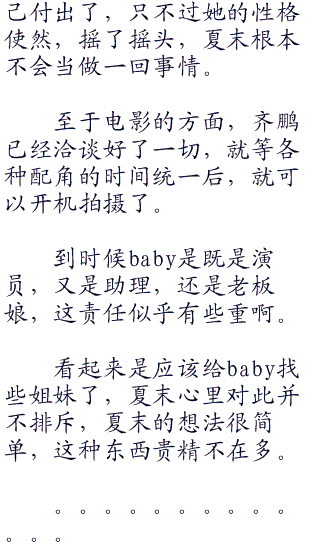 己付出了，只不过她的性格
使然，摇了摇头，夏末根本
不会当做一回事情。
至于电影的方面，齐鹏
已经洽谈好了一切，就等各
种配角的时间统一后，就可
以开机拍摄了。
到时候baby是既是演
员，又是助理，还是老板
娘，这责任似乎有些重啊。
看起来是应该给baby找
些姐妹了，夏末心里对此并
不排斥，夏末的想法很简
单，这种东西贵精不在多。
。。。。。。。。。。
。。。